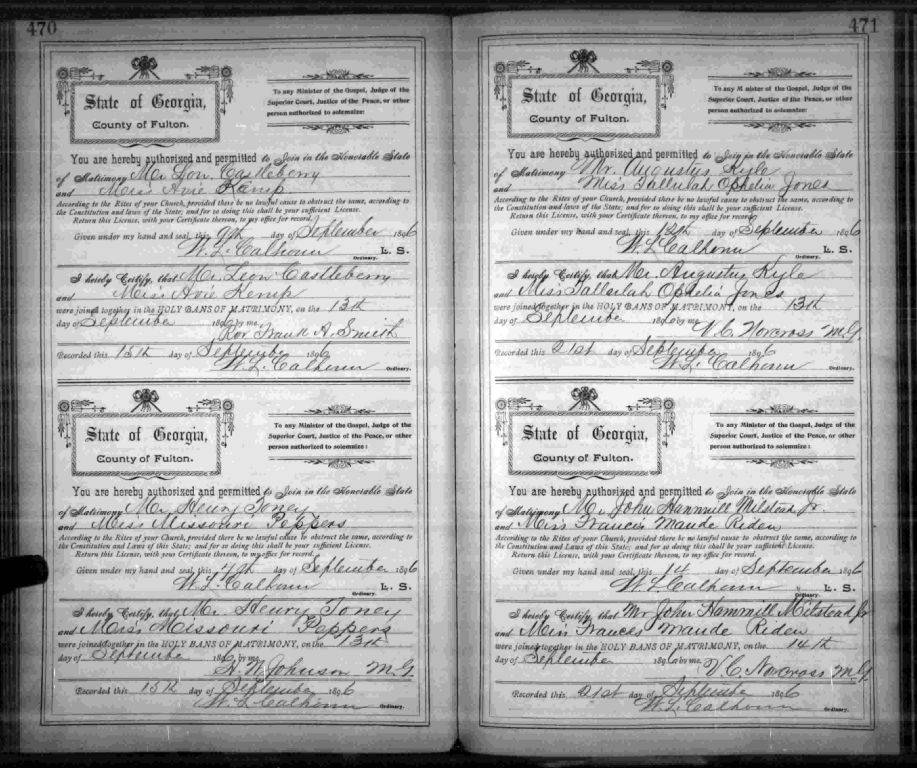 470
State of Georgia,
County of Fulton.
To any Minister of the Gospel, Judge of the
Superior Court, Justice of the Peace, or other
person authorized to solemnize:
You are hereby authorized and permitted to Join in the Honorable State
of Matrimony Mr Lon Castleberry
and Miss Avie Kemp
According to the Rites of your Church, provided there be no lawful cause to obstruct the same, according to
the Constitution and laws of the State; and for so doing this shall be your sufficient License.
Return this License, with your Certificate thereon, to my office for record.
Given under my hand and seal, this 9th day of September 1896
W. L. Calhoun L. S.
Ordinary.
I hereby Certify, that Mr. Leon Castleberry
and Miss Avie Kemp
were joined together in the HOLY BANS OF MATRIMONY, on the 13th
day of September 1896 by me,
Rev. Frank A. Smith
Recorded this 15th day of September 1896
W. L. Calhoun Ordinary.
State of Georgia,
County of Fulton.
To any Minister of the Gospel, Judge of the
Superior Court, Justice of the Peace, or other
person authorized to solemnize:
You are hereby authorized and permitted to Join in the Honorable State
of Matrimony Mr. Henry Toney
and Miss Missouri Peppers
According to the Rites of your Church, provided there be no lawful cause to obstruct the same, according to
the Constitution and Laws of this State; and for so doing this shall be your sufficient License.
Return this License, with your Certificate thereon, to my office for record.
Given under my hand and seal, this day of September 1896
W L Calhoun L. S.
Ordinary.
I hereby Certify, that Mr. Henry Toney
and Miss Missouri Peppers
were joined together in the HOLY BANS OF MATRIMONY, on the 13th
day of September 1896 by me,
Johnson M.G.
Recorded this 15th day of September 1896
W. L. Calhoun Ordinary.
471
State of Georgia,
County of Fulton.
To any Minister of the Gospel, Judge of the
Superior Court, Justice of the Peace, or other
person authorized to solemnize:
You are hereby authorized and permitted to Join in the Honorable State
of Matrimony Mr. Augustus Kyle
and Miss Tallulah Ophelia Jones
According to the Rites of your Church, provided there be no lawful cause to obstruct the same, according to
the Constitution and laws of the State; and for so doing this shall be your sufficient License.
Return this License, with your Certificate thereon, to my office for record.
Given under my hand and seal, this 12th day of September 1896
W. L. Calhoun L. S.
Ordinary.
I hereby Certify, that Mr Augustus Kyle
and Miss Tallulah Ophelia Jones
were joined together in the HOLY BANS OF MATRIMONY, on the 13th
day of September 1896 by me,
V. C. Norcross M.G.
Recorded this 21st day of September 1896
W. L. Calhoun Ordinary.
State of Georgia,
County of Fulton.
To any Minister of the Gospel, Judge of the
Superior Court, Justice of the Peace, or other
person authorized to solemnize:
You are hereby authorized and permitted to Join in the Honorable State
of Matrimony Mr John Hammill Milstead Jr.
and Miss Frances Maude Riden
According to the Rites of your Church, provided there be no lawful cause to obstruct the same, according to
the Constitution and Laws of this State; and for so doing this shall be your sufficient License.
Return this License, with your Certificate thereon, to my office for record.
Given under my hand and seal, this 14 day of September 1896
W. L. Calhoun L. S.
Ordinary.
I hereby Certify, that Mr John Hammill Milstead Jr
and Miss Frances Maude Riden
were joined together in the HOLY BANS OF MATRIMONY, on the 14th
day of September 1896 by me,
V. C. Norcross M.G.
Recorded this 21st day of September 1896
W. L. Calhoun Ordinary.